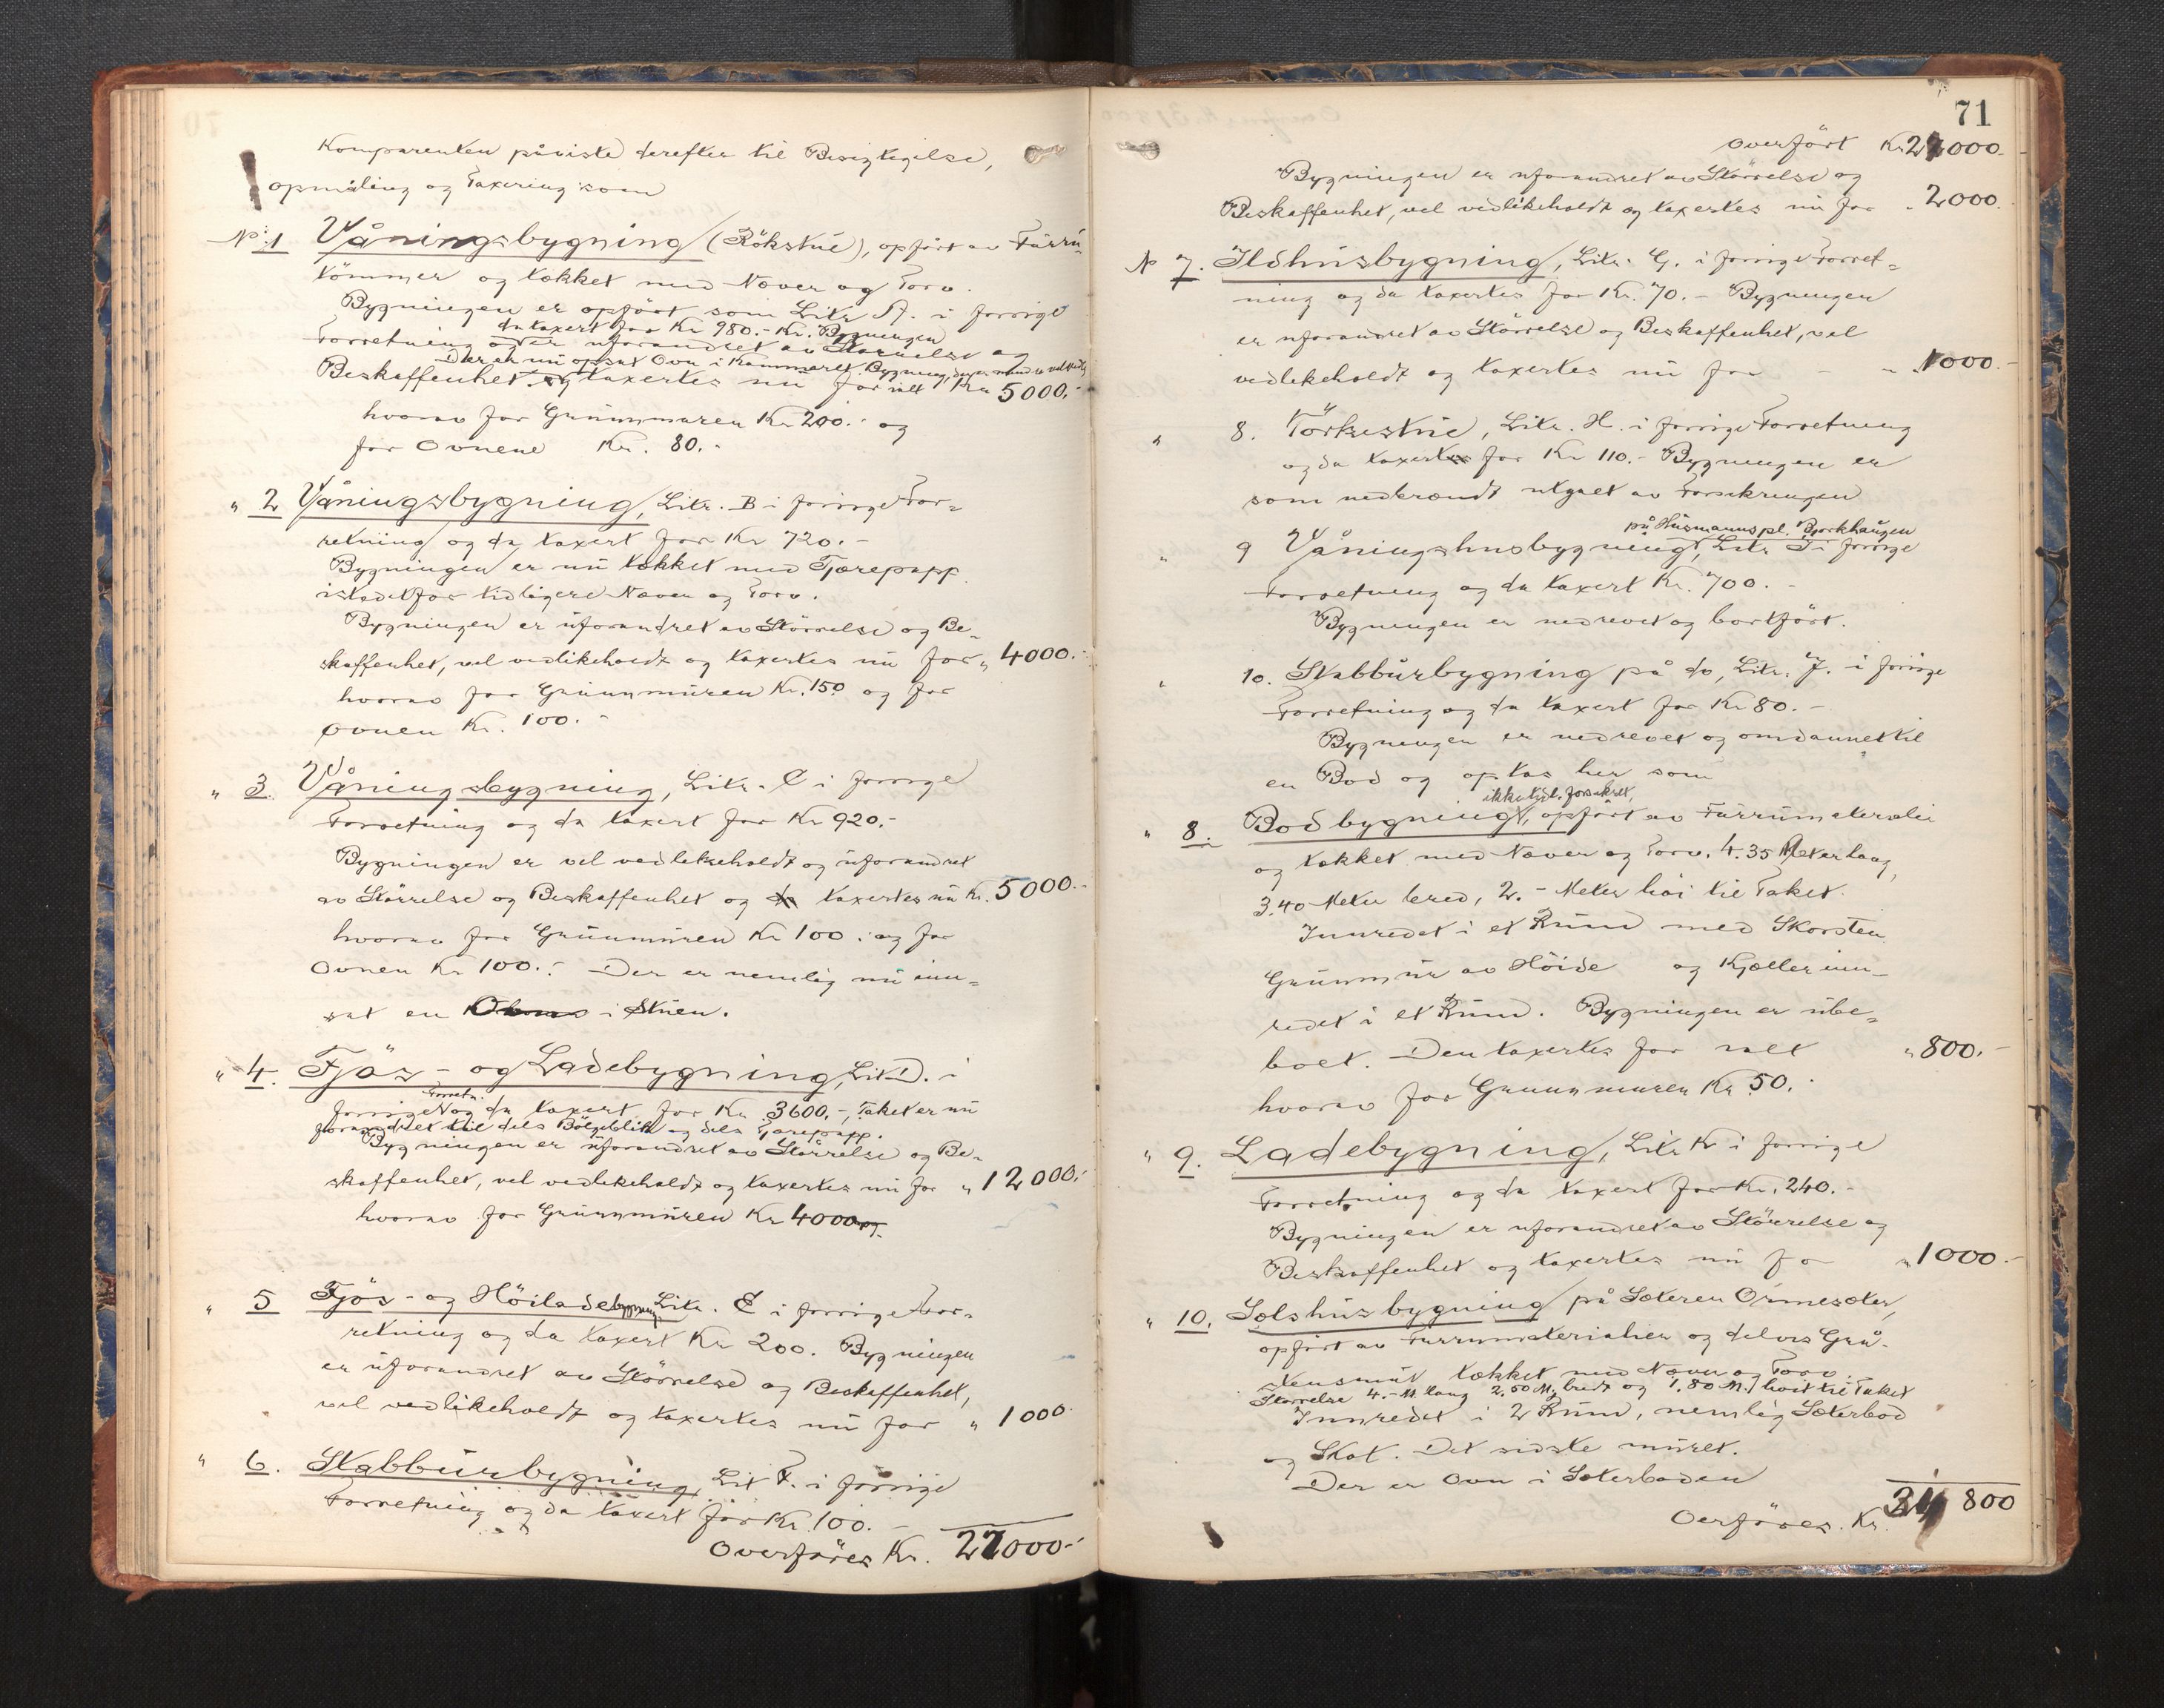 Komparenten påviste derefter til Besigtigelse,
opmåling og Taxering som
No 1 Våningsbygning (Rökstue), opfört av Furru-
tömmer og tækket med Næver og Torv.
Bygningen er opfört som Litr A. i forrige
da taxert for Kr 980.- Kr. Bygningen
Forretning og er uforandret av Störrelse og
Der er nu opsat Ovn i Kammeret. Bygning
Beskaffenhet og taxertes nu for alt Kr 5000.-
hvorav for Grunnmuren Kr 200.- og
for Ovnene Kr. 80.-
" 2 Våningsbygning, Litr. B i forrige For-
retning og da taxert for Kr 720.-
Bygningen er nu tækket med Tjærepapp
istedetfor tidligere Næver og Torv.
Bygningen er uforandret av Störrelse og Be-
skaffenhet, vel vedlikeholdt og taxertes nu for " 4000.-
hvorav for Grunnmuren Kr. 150 og for
ovnen Kr. 100.-
" 3. Våningsbygning, Litr. C i forrige
Forretning og da taxert for Kr 920.-
Bygningen er vel vedlikeholdt og uforandret
av Störrelse og Beskaffenhet og da taxertes nu Kr. 5000.-
hvorav for Grunnmuren Kr 100.- og for
Ovnen Kr 100.- Der er nemlig nu inn-
sat en i Stuen.
" 4. Fjös- og Ladebygning, Lit D. i
Forretn.
forrige og da taxert for Kr 3600.-, Taket er nu
forandret til dels Bölgeblikk og dels Tjærepapp.
Bygningen er uforandret av Störrelse og Be-
skaffenhet, vel vedlikeholdt og taxertes nu for " 12000.-
hvorav for Grunnmuren Kr 4000 og
" 5 Fjös- og Höiladebygning Litr. E i forrige For-
retning og da taxert Kr 200. Bygningen
er uforandret av Störrelse og Beskaffenhet,
vel vedlikeholdt og taxertes nu for " 1000
" 6. Stabbursbygning, Lit F. i forrige
Forretning og da taxert for Kr. 100.-
Overföres Kr. 27000.-
71
Overfört Kr 27000.-
Bygningen er uforandret av Störrelse og
Beskaffenhet, vel vedlikeholdt og taxertes nu for " 2000.
No 7. Ildhusbygning, Litr. G. i forrige Forret-
ning og da taxertes for Kr. 70.- Bygningen
er uforandret av Störrelse og Beskaffenhet, vel
vedlikeholdt og taxertes nu for - " 1000.-
" 8. Törkestue, Litr. H. i forrige Forretning
og da taxertes for Kr 110.- Bygningen er
som nedbrændt utgaet av Forsikringen
på Husmannspl. Bjørkhaugen
" 9 Våningshusbygning, Litr I i forrige
Forretning og da taxert Kr. 700.-
Bygningen er nedrevet og bortfört.
" 10. Stabburbygning på do, Litr. J. i forrige
Forretning og da taxert for Kr 80.-
Bygningen er nedrevet og omdannet til
en Bod og optas her som
ikke tidl. forsikret,
" 8. Bodbygning, opfört av Furrumaterialier
og tækket med Næver og Torv. 4.35 Meter lang,
3.40 Meter bred, 2.- Meter höi til Taket.
Innredet i et Rum med Skorsten
Grunnmur av Höide og Kjæller inn-
redet i et Rum. Bygningen er ube-
boet. Den taxertes for alt " 800.-
hvorav for Grunnmuren Kr 50.-
" 9. Ladebygning, Litr K i forrige
Forretning og da taxert for Kr. 240.-
Bygningen er uforandret av Störrelse og
Beskaffenhet og taxertes nu for " 1000.-
" 10. Sælshusbygning på Sæteren Ormesæter,
opfört av Furrumaterialier og delvis Grå-
stensmur tækket med Næver og Torv.
Störrelse 4.- M. lang 2.50 M. bredt og 1.80 M. höit til Taket
Innredet i 2 Rum, nemlig Sæterbod
og Skot. Det sidste muret.
Der er Ovn i Sæterboden
Overföres. Kr. 31800